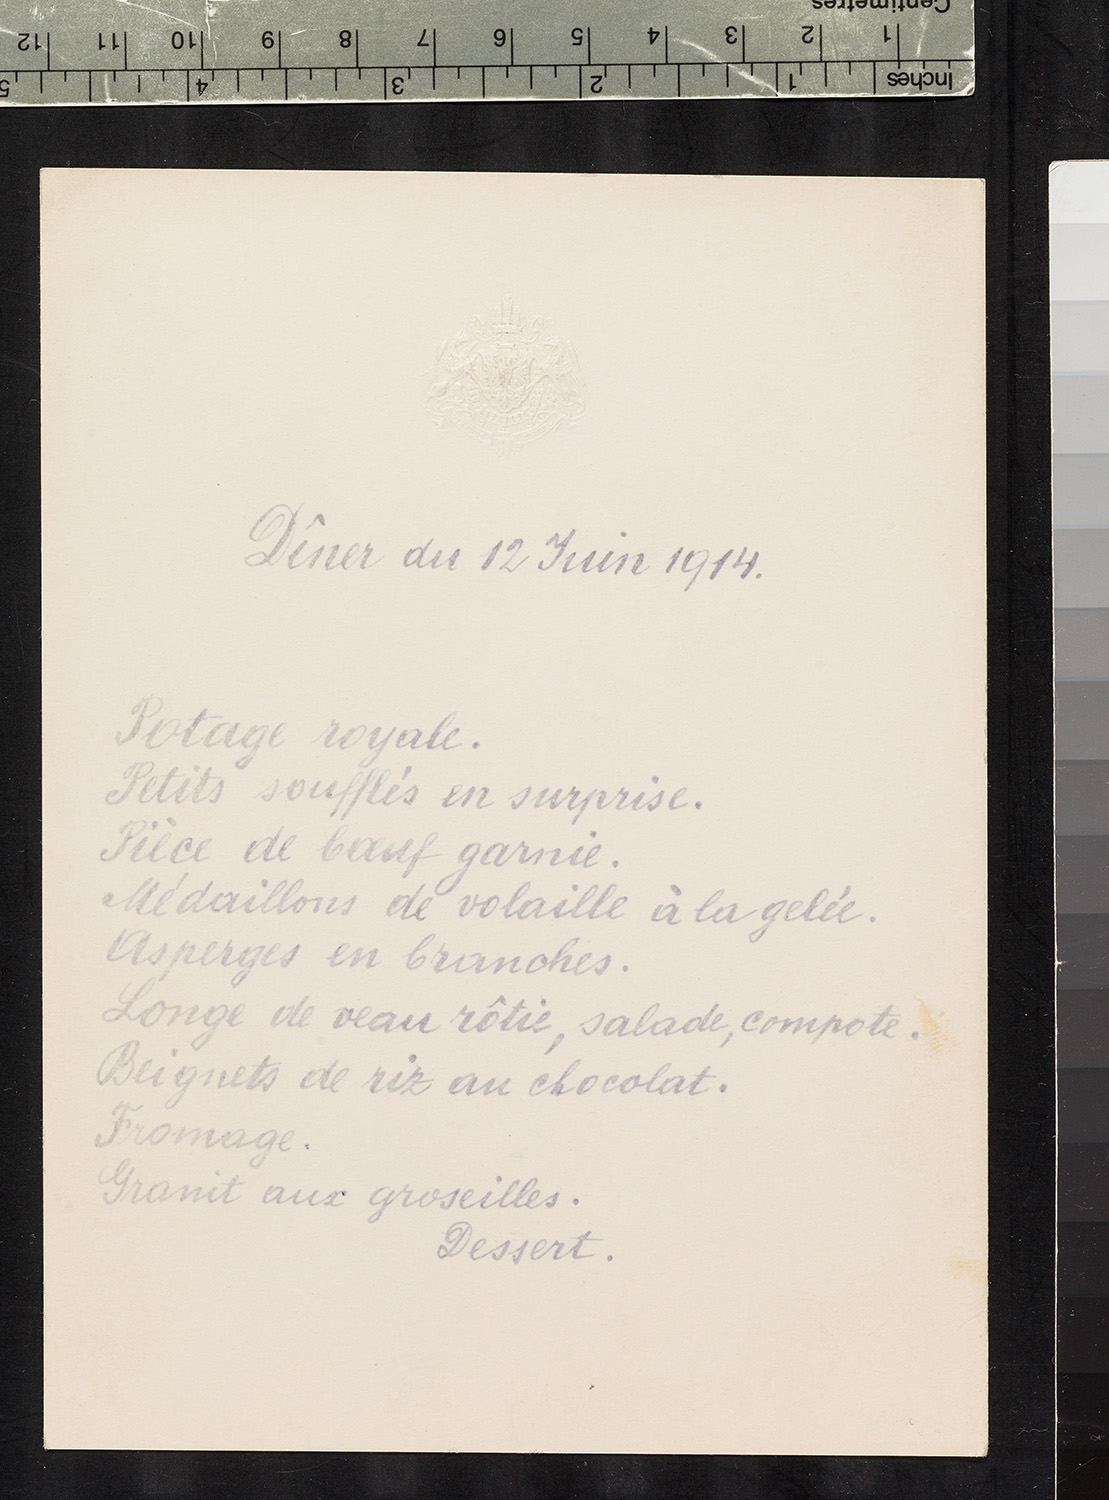 Centimetres
12 11 10 9 8 7 6 5 4 3 2 1
5 4 3 2 1 Inches
Dîner du 12 Juin 1914.
Potage royale.
Petits soufflés en surprise.
Pièce de bœuf garnie.
Médaillons de volaille à la gelée.
Asperges en branches.
Longe de veau rôtie, salade, compote.
Beignets de riz au chocolat.
Fromage.
Granit aux groseilles.
Dessert.